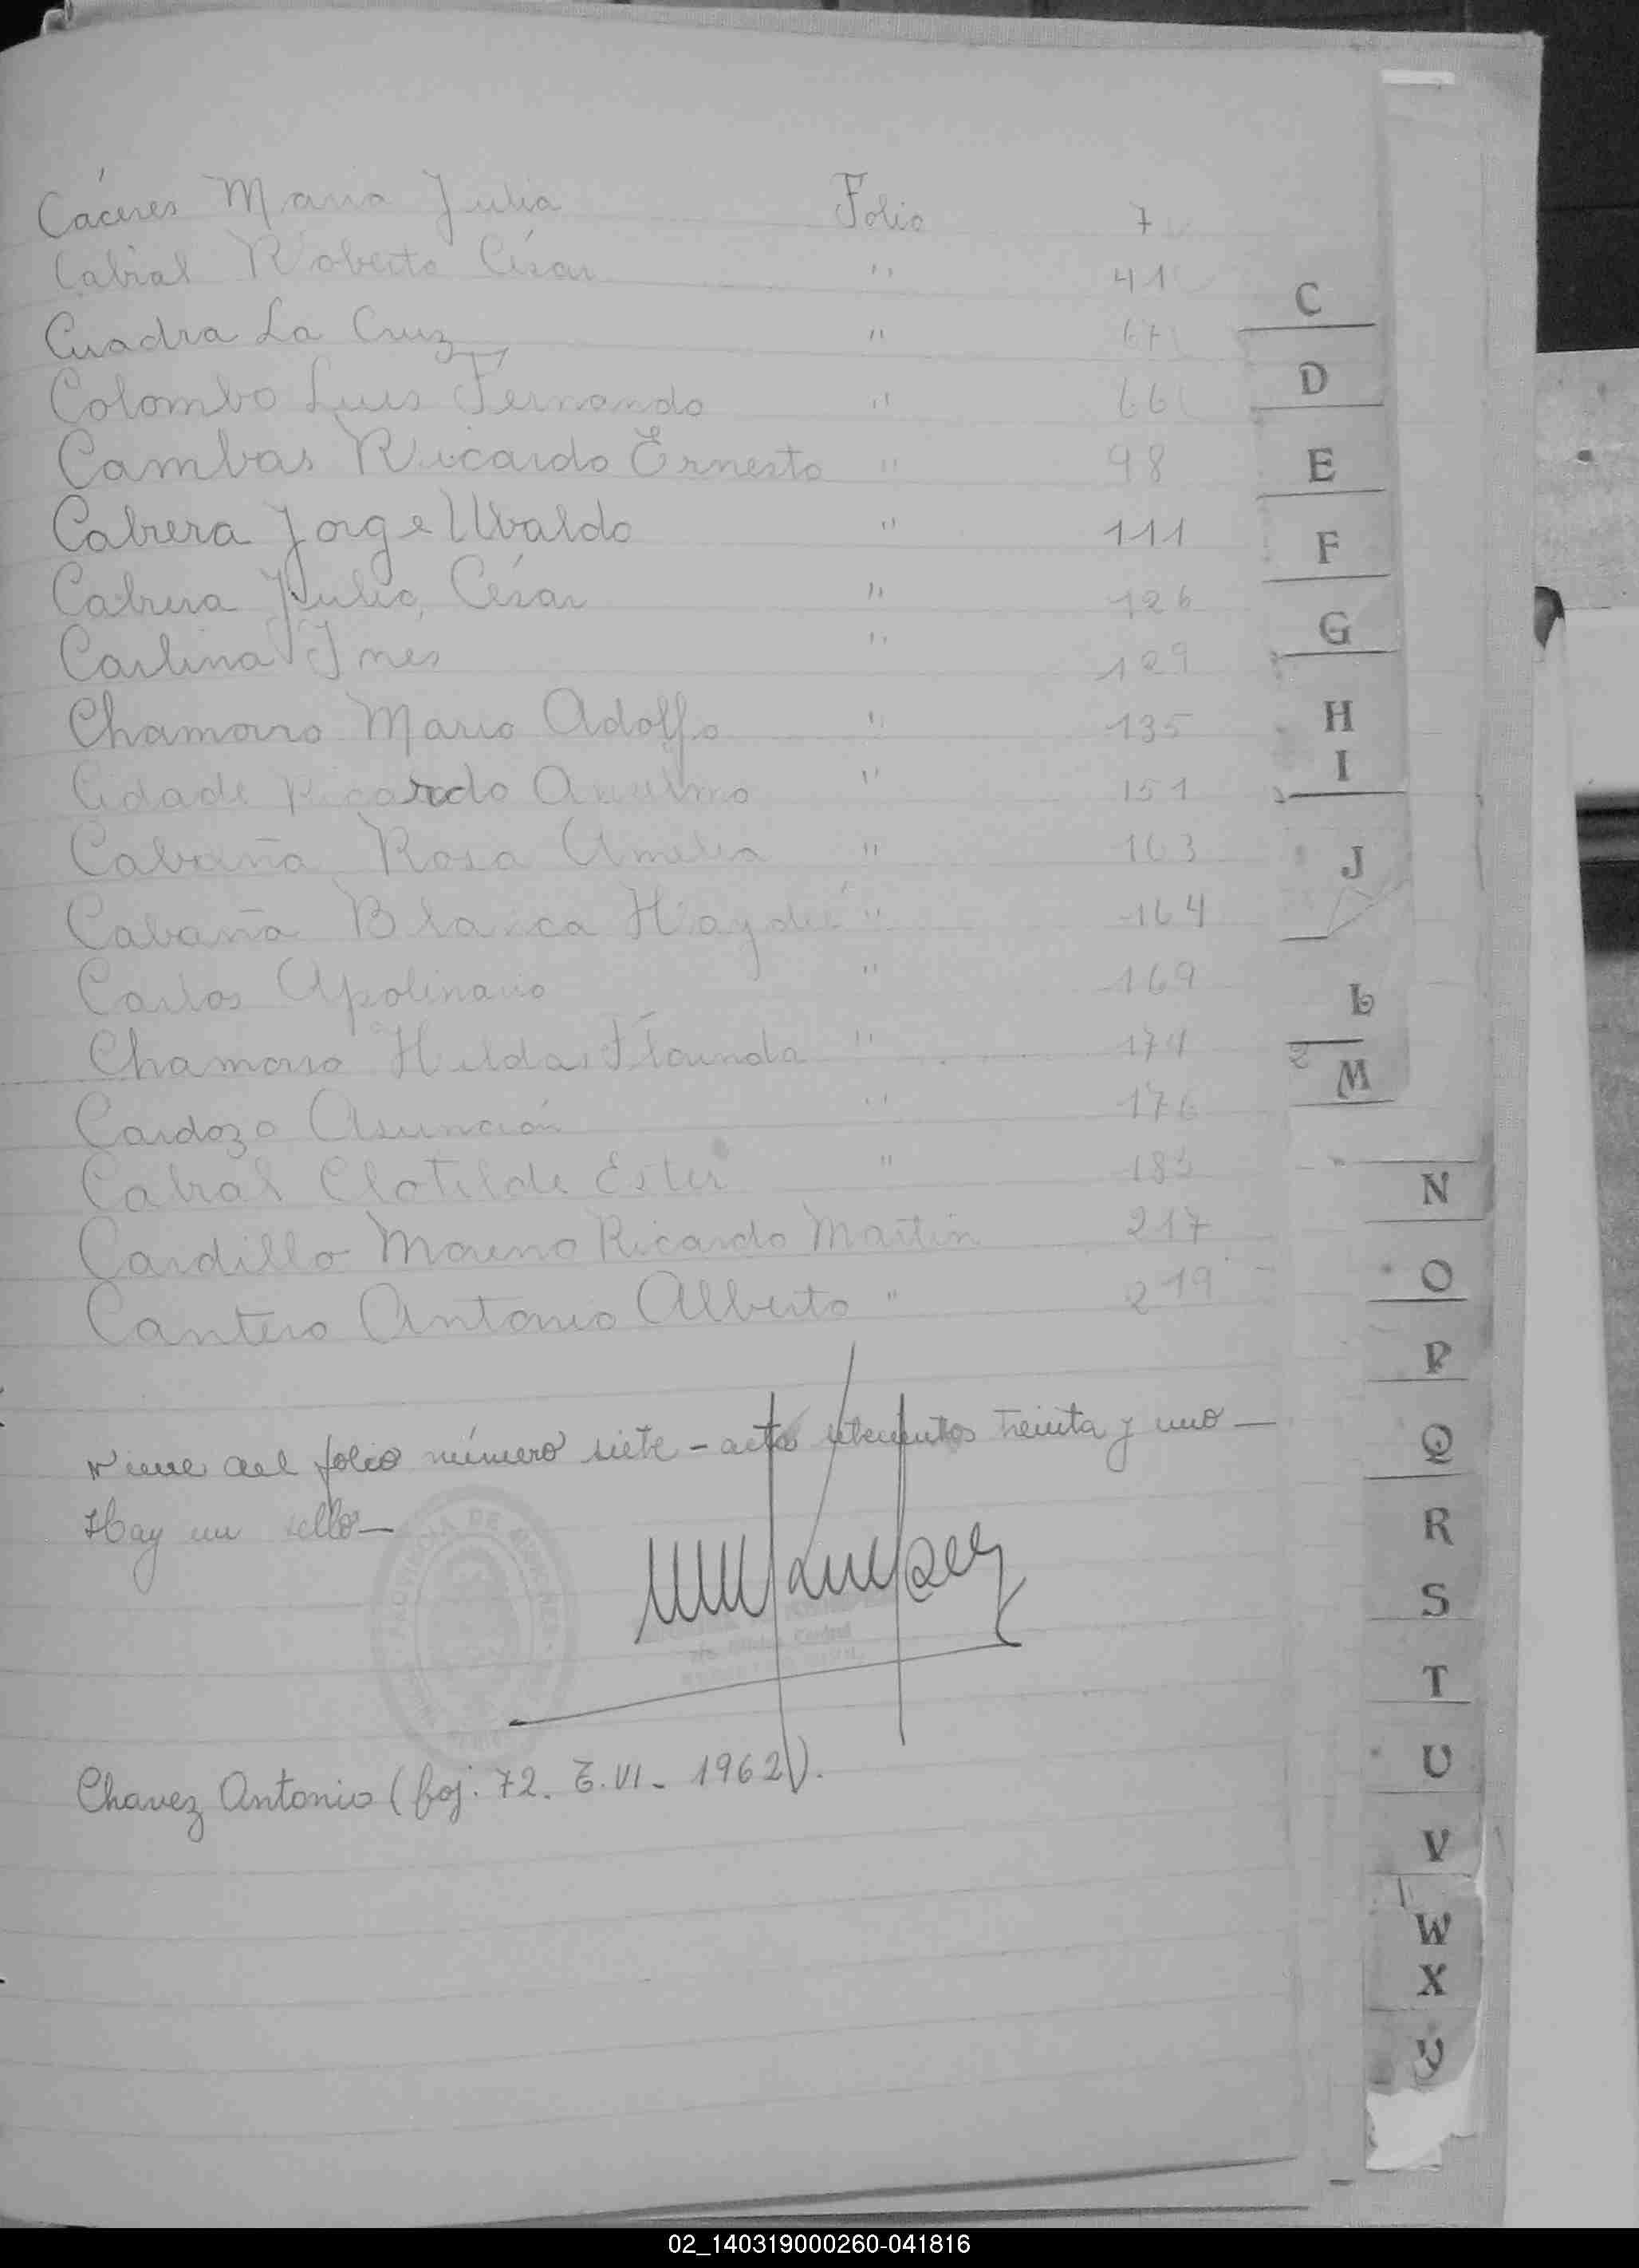 Cáceres Maria Julia Folio 7
Cabral Roberto César " 41
Cuadra La Cruz " 67
Colombo Luis Fernando " 66
Cambas Ricardo Ernesto " 98
Cabrera Jorge Ubaldo " 111
Cabrera Julio César " 126
Carlina Ines " 129
Chamorro Mario Adolfo " 135
Cidade Ricardo Anselmo " 151
Cabaña Rosa Amelia " 163
Cabaña Blanca Haydeé " 164
Carlos Apolinario " 169
Chamorro Hilda Florinda " 174
Cardozo Asunción " 176
Cabral Clotilde Ester " 183
Cardillo Moreno Ricardo Martin 217
Cantero Antonio Alberto " 219
Viene del folio número siete - acta setecientos treinta y uno —
Hay un sello —
Chavez Antonio (foj. 72. T.VI - 1962).
C
D
E
F
G
H
I
J
L
M
N
O
P
Q
R
S
T
U
V
W
X
02_140319000260-041816